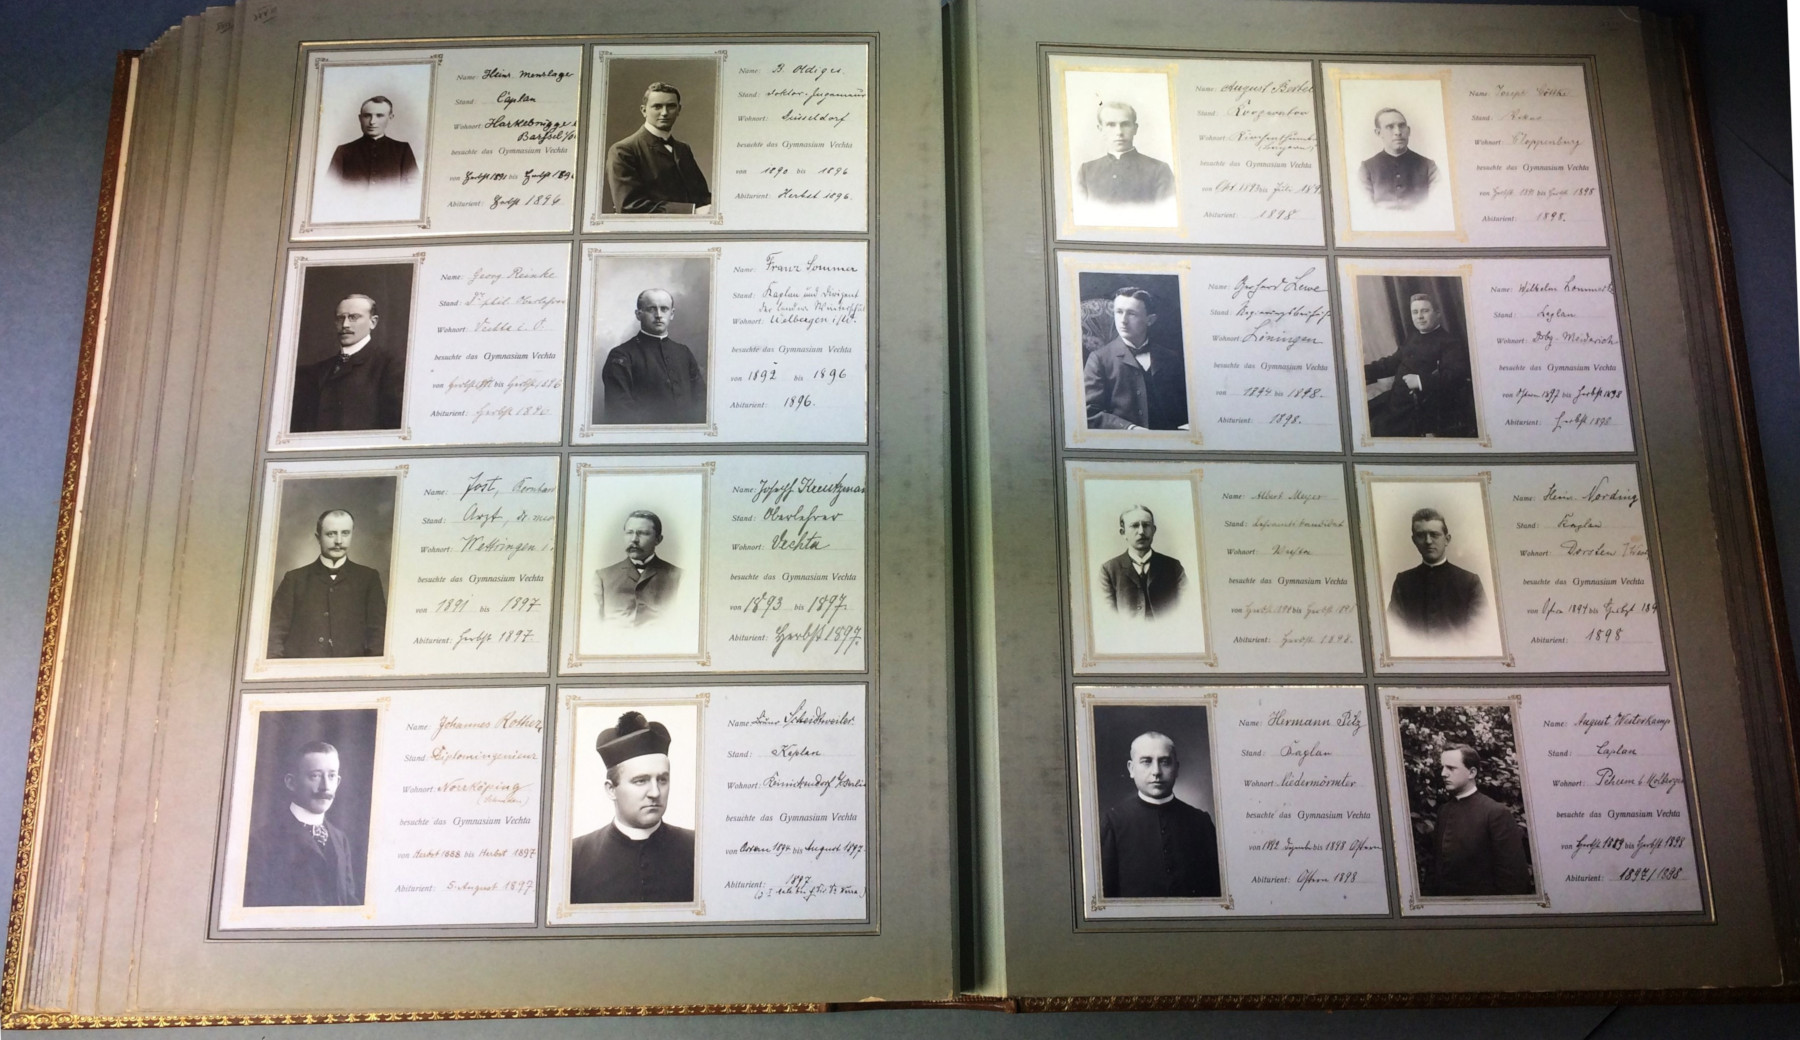 Name: Heinr. Menslage
Stand: Caplan
Wohnort: Harkebrügge
Barßel i/O.
besuchte das Gymnasium Vechta
von Herbst 1891 bis Herbst 1896
Abiturient: Herbst 1896.
Name: B. Oldiges.
Stand: Doktor-Ingenieur
Wohnort: Düsseldorf
besuchte das Gymnasium Vechta
von 1890 bis 1896
Abiturient: Herbst 1896.
Name: Georg Reinke
Stand: Dr phil. Oberlehrer
Wohnort: Vechta i. O.
besuchte das Gymnasium Vechta
von Herbst bis Herbst 1896
Abiturient: Herbst 1896
Name: Franz Sommer
Stand: Kaplan und Dirigent
der landw. Winterschule
Wohnort:
besuchte das Gymnasium Vechta
von 1892 bis 1896
Abiturient: 1896.
Name: Jost, Bernhard
Stand: Arzt, Dr. med
Wohnort: Wettringen i.
besuchte das Gymnasium Vechta
von 1891 bis 1897
Abiturient: Herbst 1897.
Name: Joseph Kreutzmann
Stand: Oberlehrer
Wohnort: Vechta
besuchte das Gymnasium Vechta
von 1893 bis 1897.
Abiturient: Herbst 1897.
Name: Johannes Rother
Stand: Diplomingenieur
Wohnort: Norrköping
(Schweden)
besuchte das Gymnasium Vechta
von Herbst 1888 bis Herbst 1897
Abiturient: 5. August 1897.
Name: Scheidtweiler
Stand: Kaplan
Wohnort: Reinickendorf b/Berlin
besuchte das Gymnasium Vechta
von Ostern 1894 bis August 1897.
Abiturient: 1897
Name: August Bartel
Stand:
Wohnort:
besuchte das Gymnasium Vechta
von Okt. 1893 bis Juli
Abiturient: 1898
Name: Joseph
Stand: Vikar
Wohnort: Cloppenburg
besuchte das Gymnasium Vechta
von Herbst bis Herbst 1898
Abiturient: 1898.
Name: Gerhard Lewe
Stand:
Wohnort: Löningen
besuchte das Gymnasium Vechta
von 1894 bis 1898.
Abiturient: 1898.
Name: Wilhelm
Stand: Caplan
Wohnort: Dsbg. Meiderich
besuchte das Gymnasium Vechta
von Ostern 1897 bis Herbst 1898
Abiturient: Herbst 1898
Name: Albert Meyer
Stand: Lehramtskandidat
Wohnort: Vechta
besuchte das Gymnasium Vechta
von Herbst bis Herbst 1898
Abiturient: Herbst 1898.
Name: Hein. Nording
Stand: Kaplan
Wohnort: Dorsten
besuchte das Gymnasium Vechta
von Ostern 1894 bis Herbst 189
Abiturient: 1898
Name: Hermann Pilz
Stand: Kaplan
Wohnort: Niedermörmter
besuchte das Gymnasium Vechta
von 1892 Dezember bis 1898 Ostern
Abiturient: Ostern 1898
Name: August Westerkamp
Stand: Caplan
Wohnort: Peheim b. Molbergen
besuchte das Gymnasium Vechta
von Herbst 1889 bis Herbst 1898
Abiturient: 1897/1898